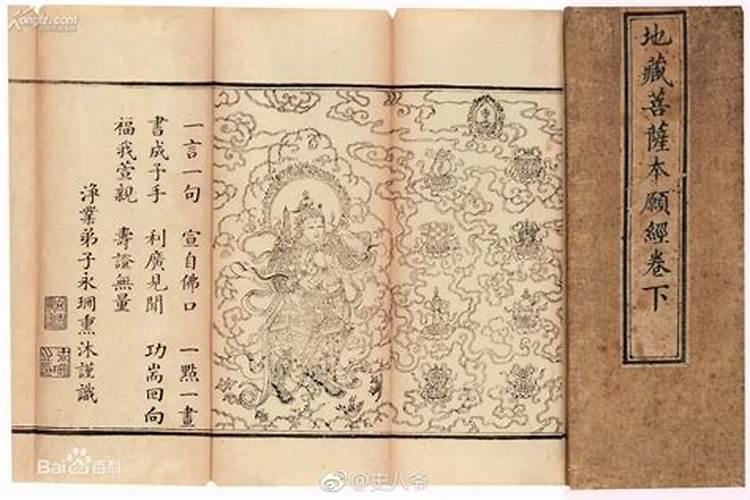 Kongfz.com
地藏菩薩本願經卷下
一言一句 宣自佛口 一點一畫
書成予手 利廣見聞 功耑回向
福我萱親 壽證無量
淨業弟子永 熏沐謹識
Bai 百科
@史人爷